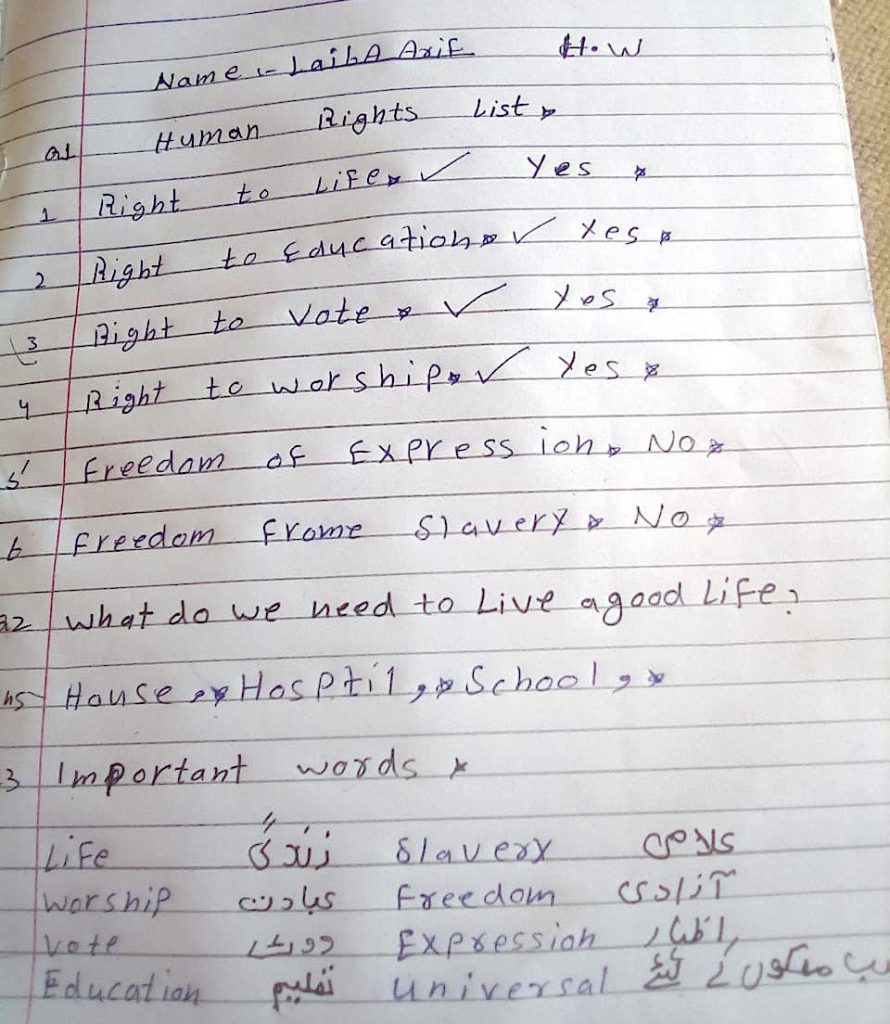 Name :- LaibA Arif H.W
Q1 Human Rights List
1 Right to Life ✓ Yes
2 Right to Education ✓ Yes
3 Right to Vote ✓ Yes
4 Right to worship ✓ Yes
5 Freedom of Expression No
6 Freedom Frome Slavery No
Q2 What do we need to Live a good Life?
Ans House, Hosptil, School,
3 Important words
Life زندگی Slavery غلامی
Worship عبادت Freedom آزادی
Vote Expression اظہار
Education تعلیم universal